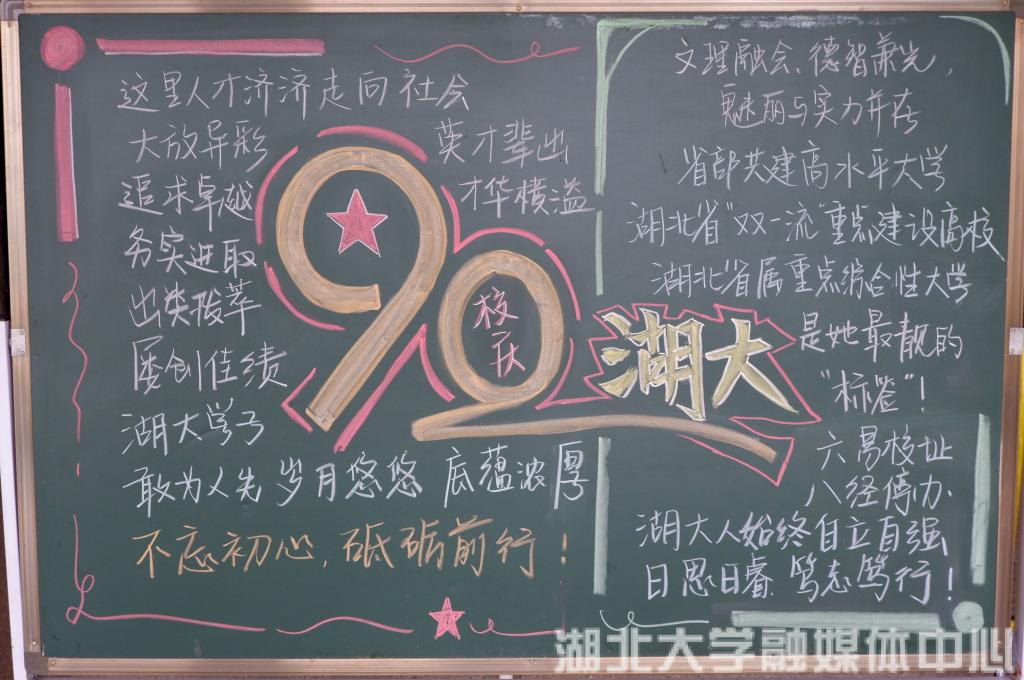 这里人才济济走向社会
大放异彩
英才辈出
追求卓越
才华横溢
务实进取
出类拔萃
屡创佳绩
湖大学子
敢为人先 岁月悠悠 底蕴浓厚
不忘初心,砥砺前行!
90
校庆
湖大
文理融会、德智兼光,
魅丽与实力并在
省部共建高水平大学
湖北省"双一流"重点建设高校
湖北省属重点综合性大学
是她最靓的
"标签"!
六易校址
八经停办
湖大人始终自立自强
日思日睿 笃志笃行!
湖北大学融媒体中心